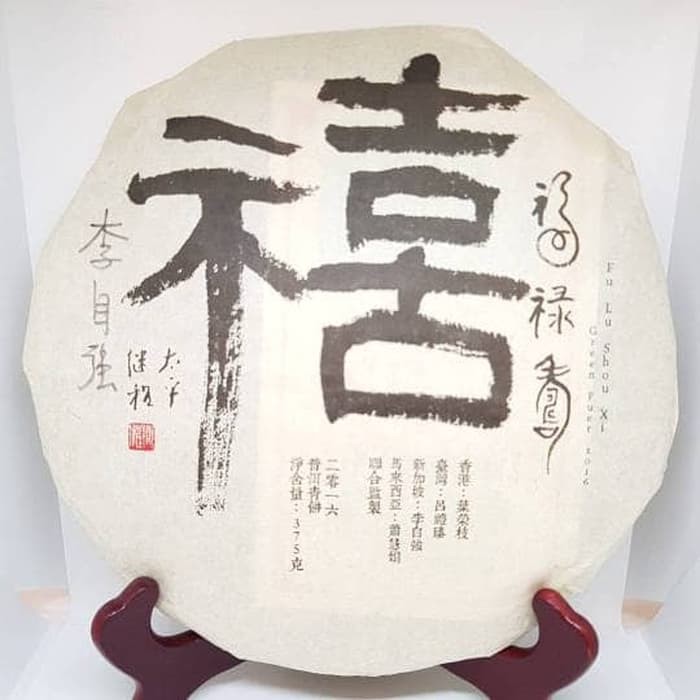 禧
福
祿
壽
Fu Lu Shou Xi
Green Puer 2016
香港：葉榮枝
臺灣：呂禮臻
新加坡：李自強
馬來西亞：蕭慧娟
四合監製
二零一六
普洱青餅
淨含量：375克
李自强